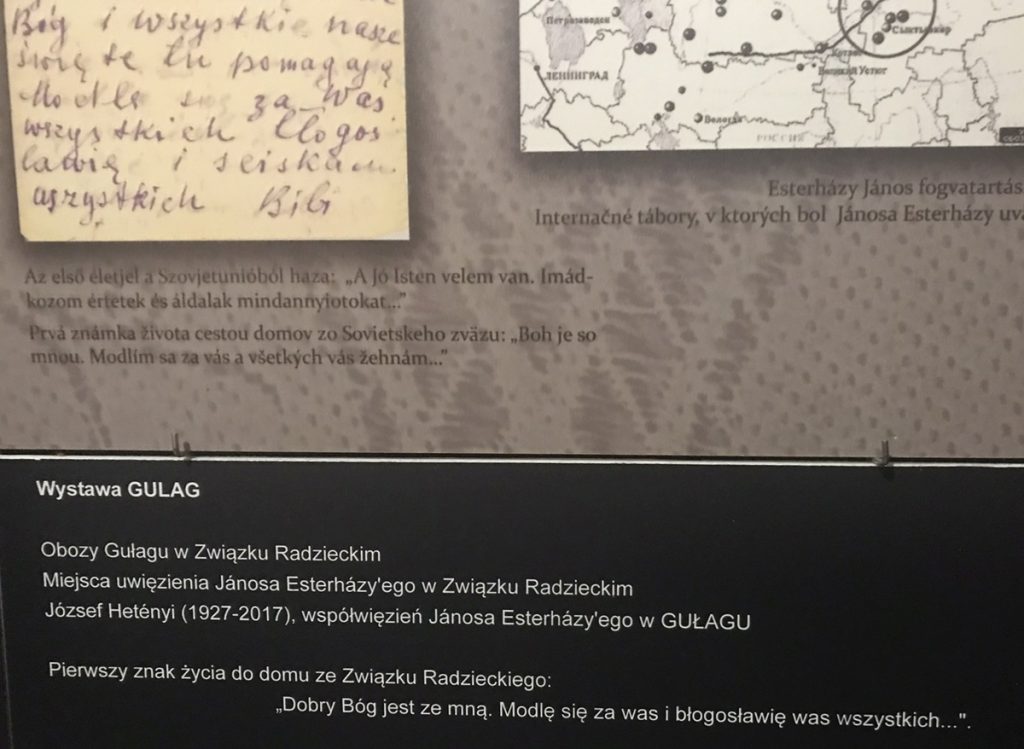 Bóg i wszystkie nasze
święte tu pomagają
Modlę się za was
wszystkich błogos
ławię i sciskam
wszystkich Bibi
Петрозаводск
ЛЕНИНГРАД
Вологда
Котлас
Великий Устюг
Сыктывкар
РОССИЯ
Esterházy János fogvatartás
Internačné tábory, v ktorých bol Jánosa Esterházy uvä
Az első életjel a Szovjetunióból haza: „A Jó Isten velem van. Imád-
kozom értetek és áldalak mindannyiotokat...”
Prvá známka života cestou domov zo Sovietskeho zväzu: „Boh je so
mnou. Modlím sa za vás a všetkých vás žehnám...”
Wystawa GULAG
Obozy Gułagu w Związku Radzieckim
Miejsca uwięzienia Jánosa Esterházy'ego w Związku Radzieckim
József Hetényi (1927-2017), współwięzień Jánosa Esterházy'ego w GUŁAGU
Pierwszy znak życia do domu ze Związku Radzieckiego:
„Dobry Bóg jest ze mną. Modlę się za was i błogosławię was wszystkich...".